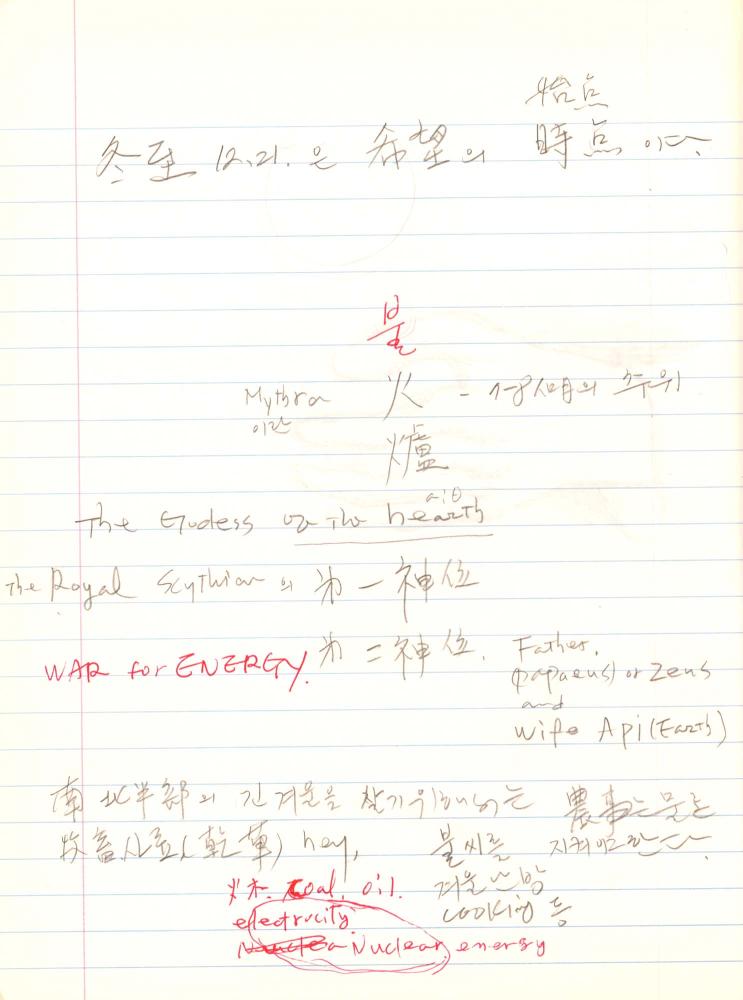 始点
冬至 12.21. 은 希望의 時点 이다.
불
Mythra 火 - 문명의 주위
이란
爐
The Godess of the hearth
The Royal Scythian 의 第一神位
WAR for ENERGY. 第二神位. Father.
(papaeus) or Zeus
and
wife Api (Earth)
南北半部의 긴겨울을 찾기위해서는 農事는 물론
牧畜사료(乾草) hey, 불씨를 지켜야한다.
火木. Coal. oil. 겨울난방
electrucity. cooking 등
Nuclear energy